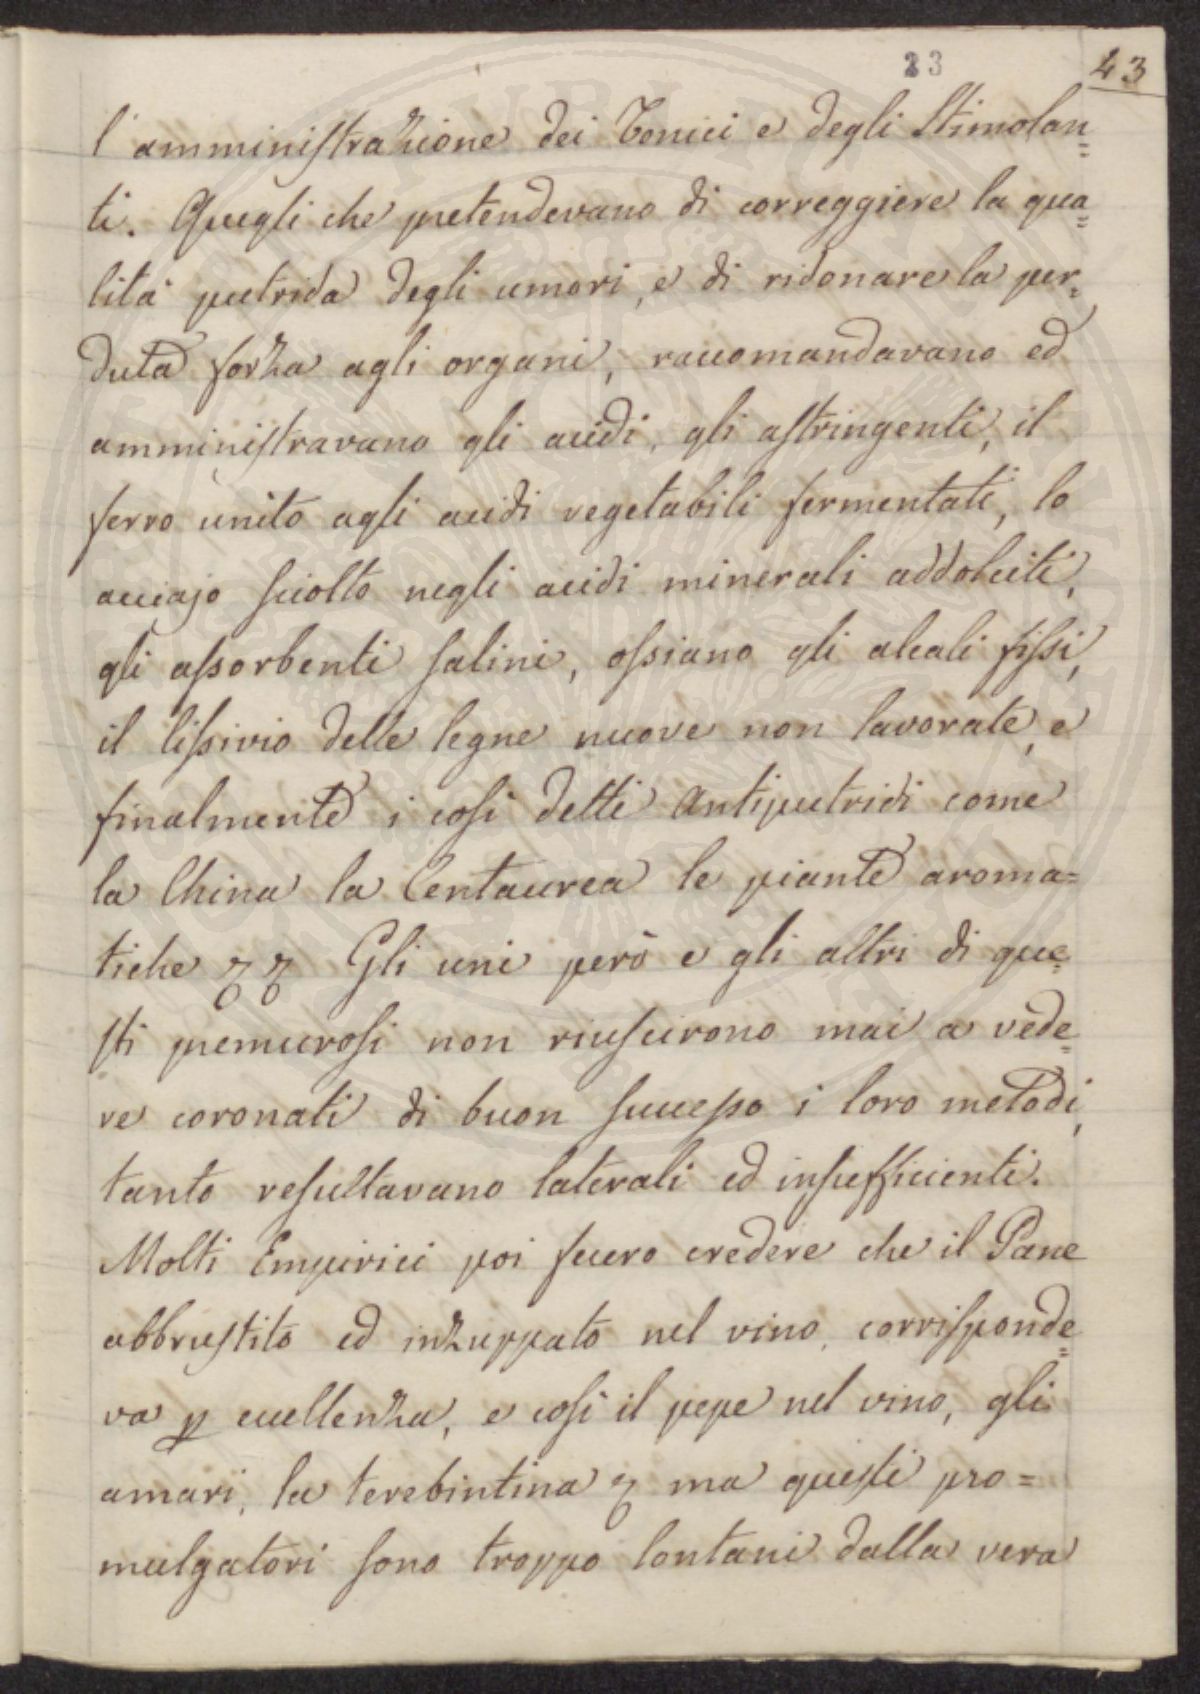 23 43
l'amministrazione dei Tonici e degli Stimolan=
ti. Quegli che pretendevano di correggiere la qua=
lità putrida degli umori, e di ridonare la per=
duta forza agli organi, raccomandavano ed
amministravano gli acidi, gli astringenti, il
ferro unito agli acidi vegetabili fermentati, lo
acciajo sciolto negli acidi minerali addolciti,
gli assorbenti salini, ossiano gli alcali fissi,
il lissivio delle legne nuove non lavorate, e
finalmente i così detti Antiputridi come
la China la Centaurea le piante aroma=
tiche &c &c Gli uni però e gli altri di que=
sti premurosi non riuscirono mai a vede=
re coronati di buon successo i loro metodi,
tanto resultavano laterali ed insufficienti.
Molti Empirici poi fecero credere che il Pane
abbrustito ed inzuppato nel vino, corrisponde=
va p eccellenza, e così il pepe nel vino, gli
amari, la terebintina &c ma questi pro=
mulgatori sono troppo lontani dalla vera